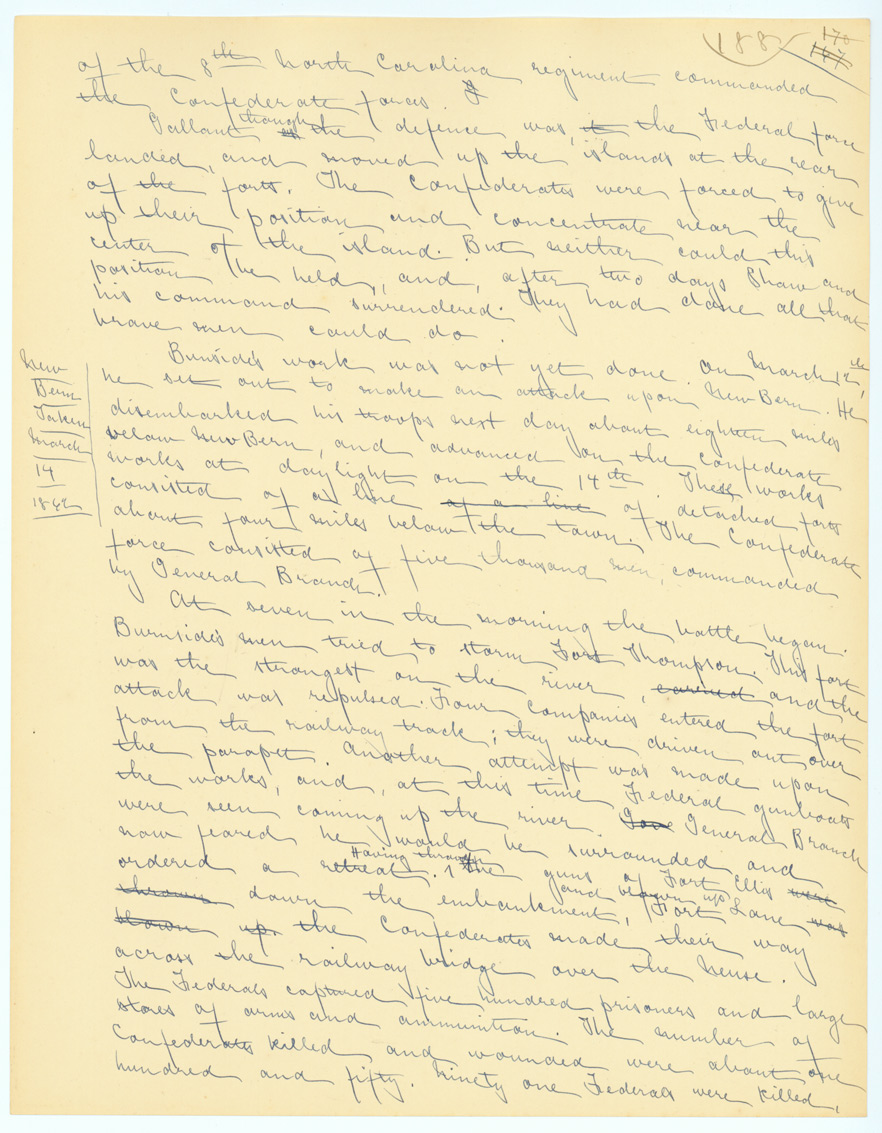 188 170
167
of the 8th North Carolina regiment commanded
the Confederate forces.
Gallant though as the defence was, it the Federal force
landed, and moved up the islands at the rear
of the forts. The Confederates were forced to give
up their position and concentrate near the
center of the island. But neither could this
position be held, and, after two days Shaw and
his command surrendered. They had done all that
brave men could do.
Bunside's work was not yet done. On March 12th,
he set out to make an attack upon New Bern. He
disembarked his troops next day about eighteen miles
below New Bern, and advanced on the Confederate
works at daylight on the 14th. These works
consisted of a line of a line of detached forts
about four miles below the town. The Confederate
force consisted of five thousand men, commanded
by General Branch.
New
Bern
Taken
March
14
1862
At seven in the morning the battle began.
Burnside's men tried to storm Fort Thompson. This fort
was the strongest on the river, and the
attack was repulsed. Four companies entered the fort
from the railway track; they were driven out over
the parapet. Another attempt was made upon
the works, and, at this time Federal gunboats
were seen coming up the river. Gove General Branch
now feared he would be surrounded and
ordered a retreat. Having thrown the guns of Fort Ellis were
thrown down the embankment, and blown up Fort Lane was
blown up. the Confederates made their way
across the railway bridge over the Neuse.
The Federals captured five hundred prisoners and large
stores of arms and ammunition. The number of
Confederates killed and wounded were about one
hundred and fifty. Ninety one Federals were killed,